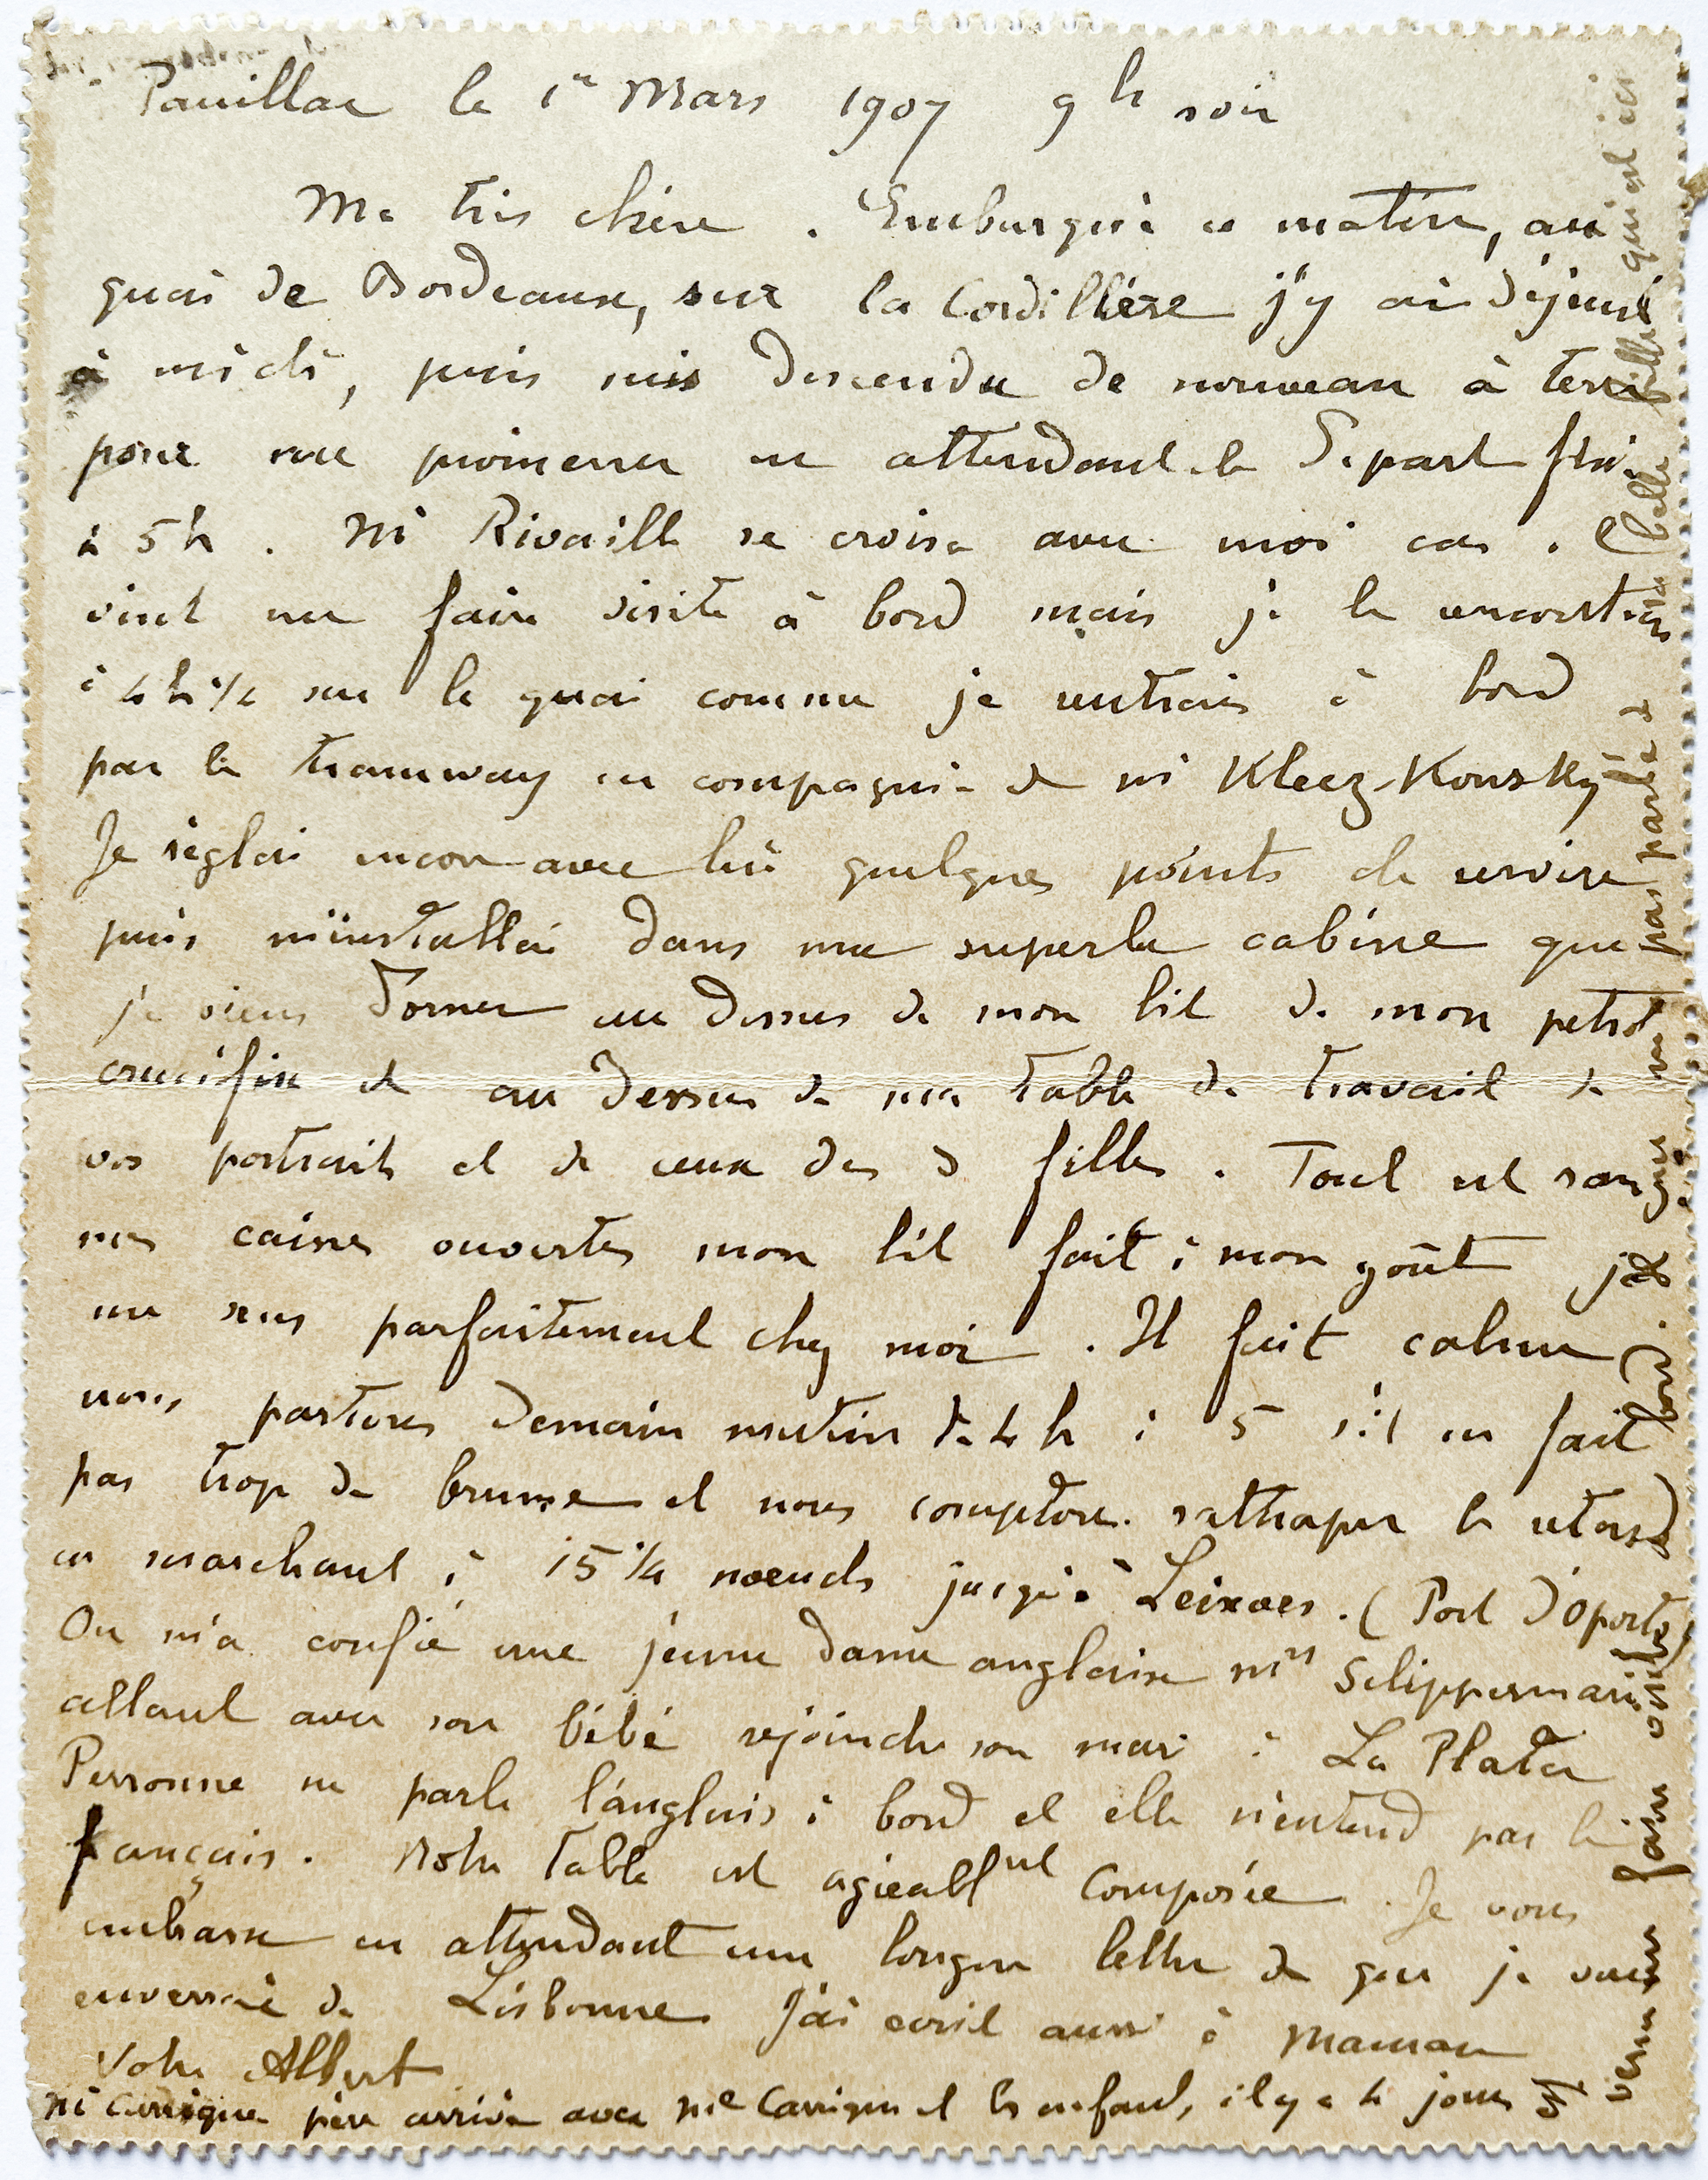 Pauillac le 1er Mars 1907 9h soir
Ma très chère. Embarqué ce matin, au
quai de Bordeaux, sur la Cordillère j'y ai déjeuné
à midi, puis suis descendu de nouveau à terre
pour me promener en attendant le départ fixé
à 5h. Mr Rivaille se croisa avec moi car. Il
vint me faire visite à bord mais je le rencontrais
à 4h 1/2 sur le quai comme je rentrais à bord
par le tramway en compagnie de Mr Kleez-Konsky
Je réglai encore avec lui quelques points de service
puis m'installai dans ma superbe cabine que
je viens d'orner au dessus de mon lit de mon petit
crucifix et au dessus de ma table de travail de
vos portraits et de ceux des 3 filles. Tout est rangé
mes caisses ouvertes mon lit fait à mon goût je
me sens parfaitement chez moi. Il fait calme
nous partons demain matin de 4h à 5 s'il ne fait
pas trop de brume et nous comptons rattraper le retard
en marchant à 15 1/4 noeuds jusqu'à Leixoes. (Port d'Oporto)
On m'a confié une jeune dame anglaise Mrs
allant avec son bébé rejoindre son mari à La Plata
Personne ne parle l'anglais à bord et elle n'entend pas le
français. Notre table est agréablnt composée. Je vous
embrasse en attendant une longue lettre de que je vous
enverrai de Lisbonne J'ai écrit aussi à Maman
Votre Albert
Mr Carrigue père arrivé avec Me Carrigue et les enfants, il y a 4 jours est
venu faire visite à bord. ne m'a pas parlé de
sa belle fille qui est ici